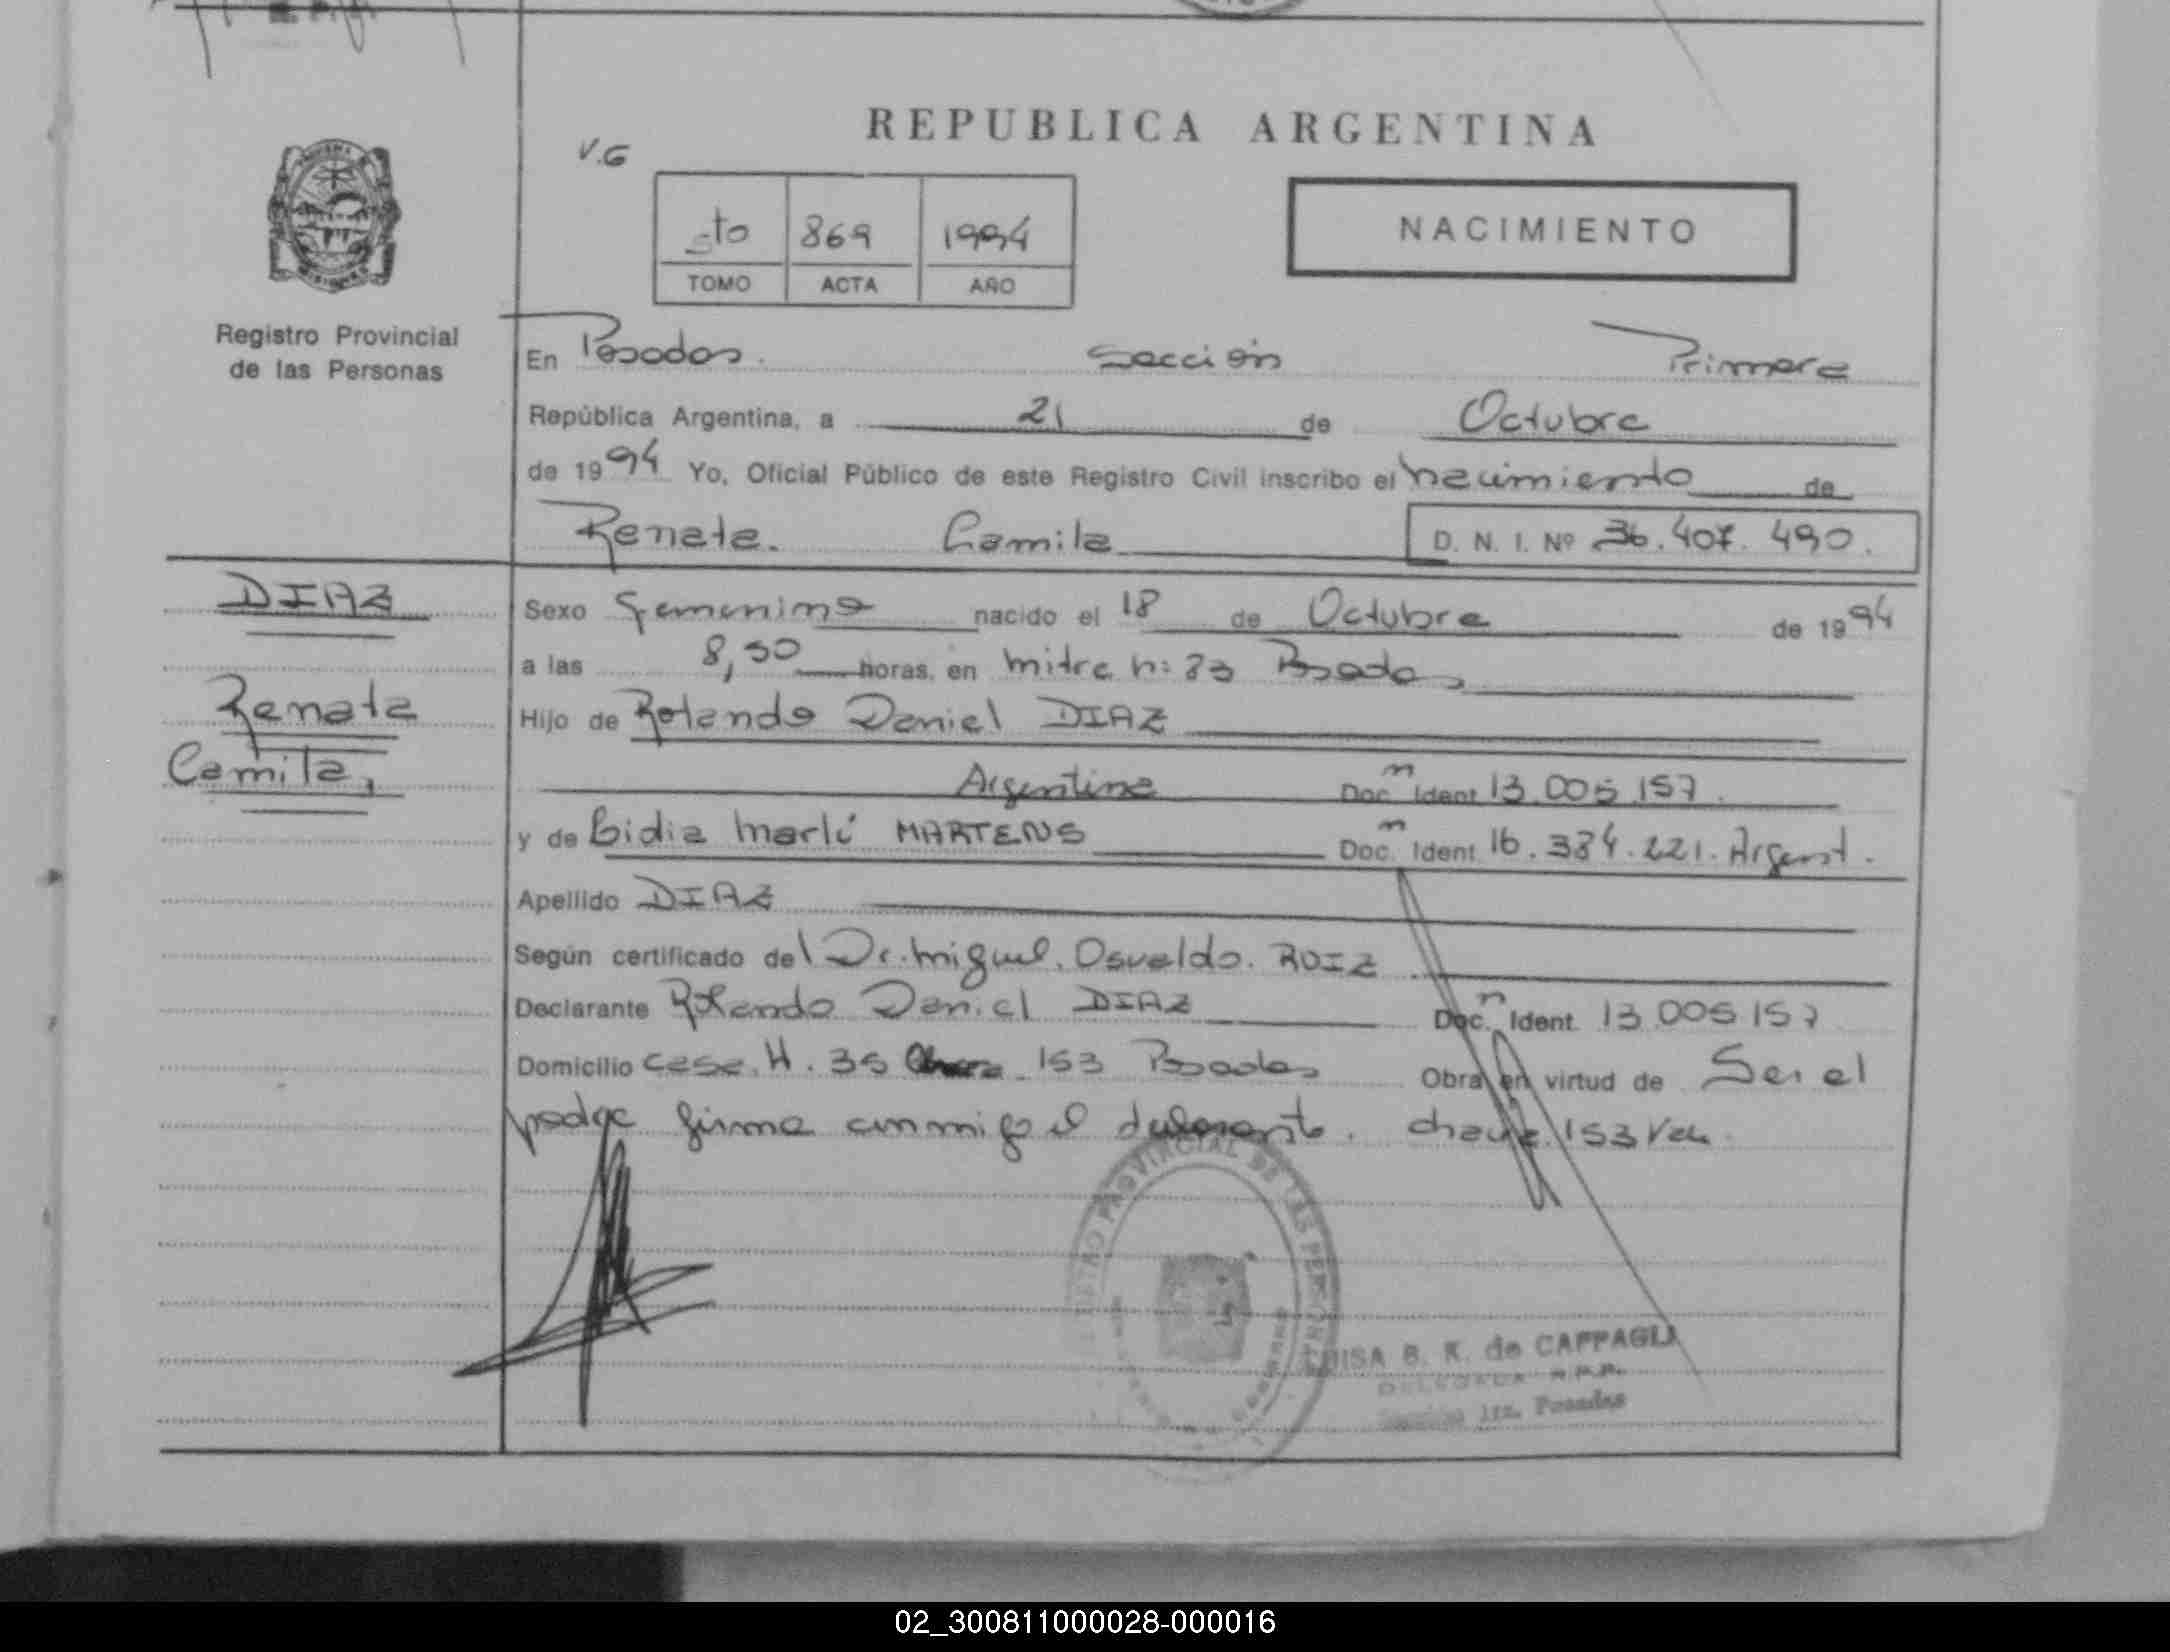 REPUBLICA ARGENTINA
V.G
5to 869 1994
TOMO ACTA AÑO
NACIMIENTO
Registro Provincial
de las Personas
En Posadas. Sección Primera
República Argentina, a 21 de Octubre
de 1994 Yo, Oficial Público de este Registro Civil inscribo el nacimiento de
Renata. Camila D. N. I. Nº 36.407.490.
DIAZ
Renata
Camila,
Sexo femenino nacido el 18 de Octubre de 1994
a las 8,50 horas, en mitre n: 83 Posadas
Hijo de Rolando Daniel DIAZ
Argentina Doc. Ident 13.005.157.
y de Lidia Marlí MARTENS Doc. Ident 16.384.221. Argent.
Apellido DIAZ
Según certificado del Dr. Miguel. Osvaldo. RUIZ
Declarante Rolando Daniel DIAZ Doc. Ident. 13 005 157
Domicilio Casa. H. 35 153 Posadas Obra en virtud de Ser el
padre firma conmigo el declarante. chacra 153 Vale.
REGISTRO PROVINCIAL DE LAS PERSONAS
LUISA B. K. de CAPPAGLI
DELEGADA R.P.P.
Sección 1ra. Posadas
02_300811000028-000016